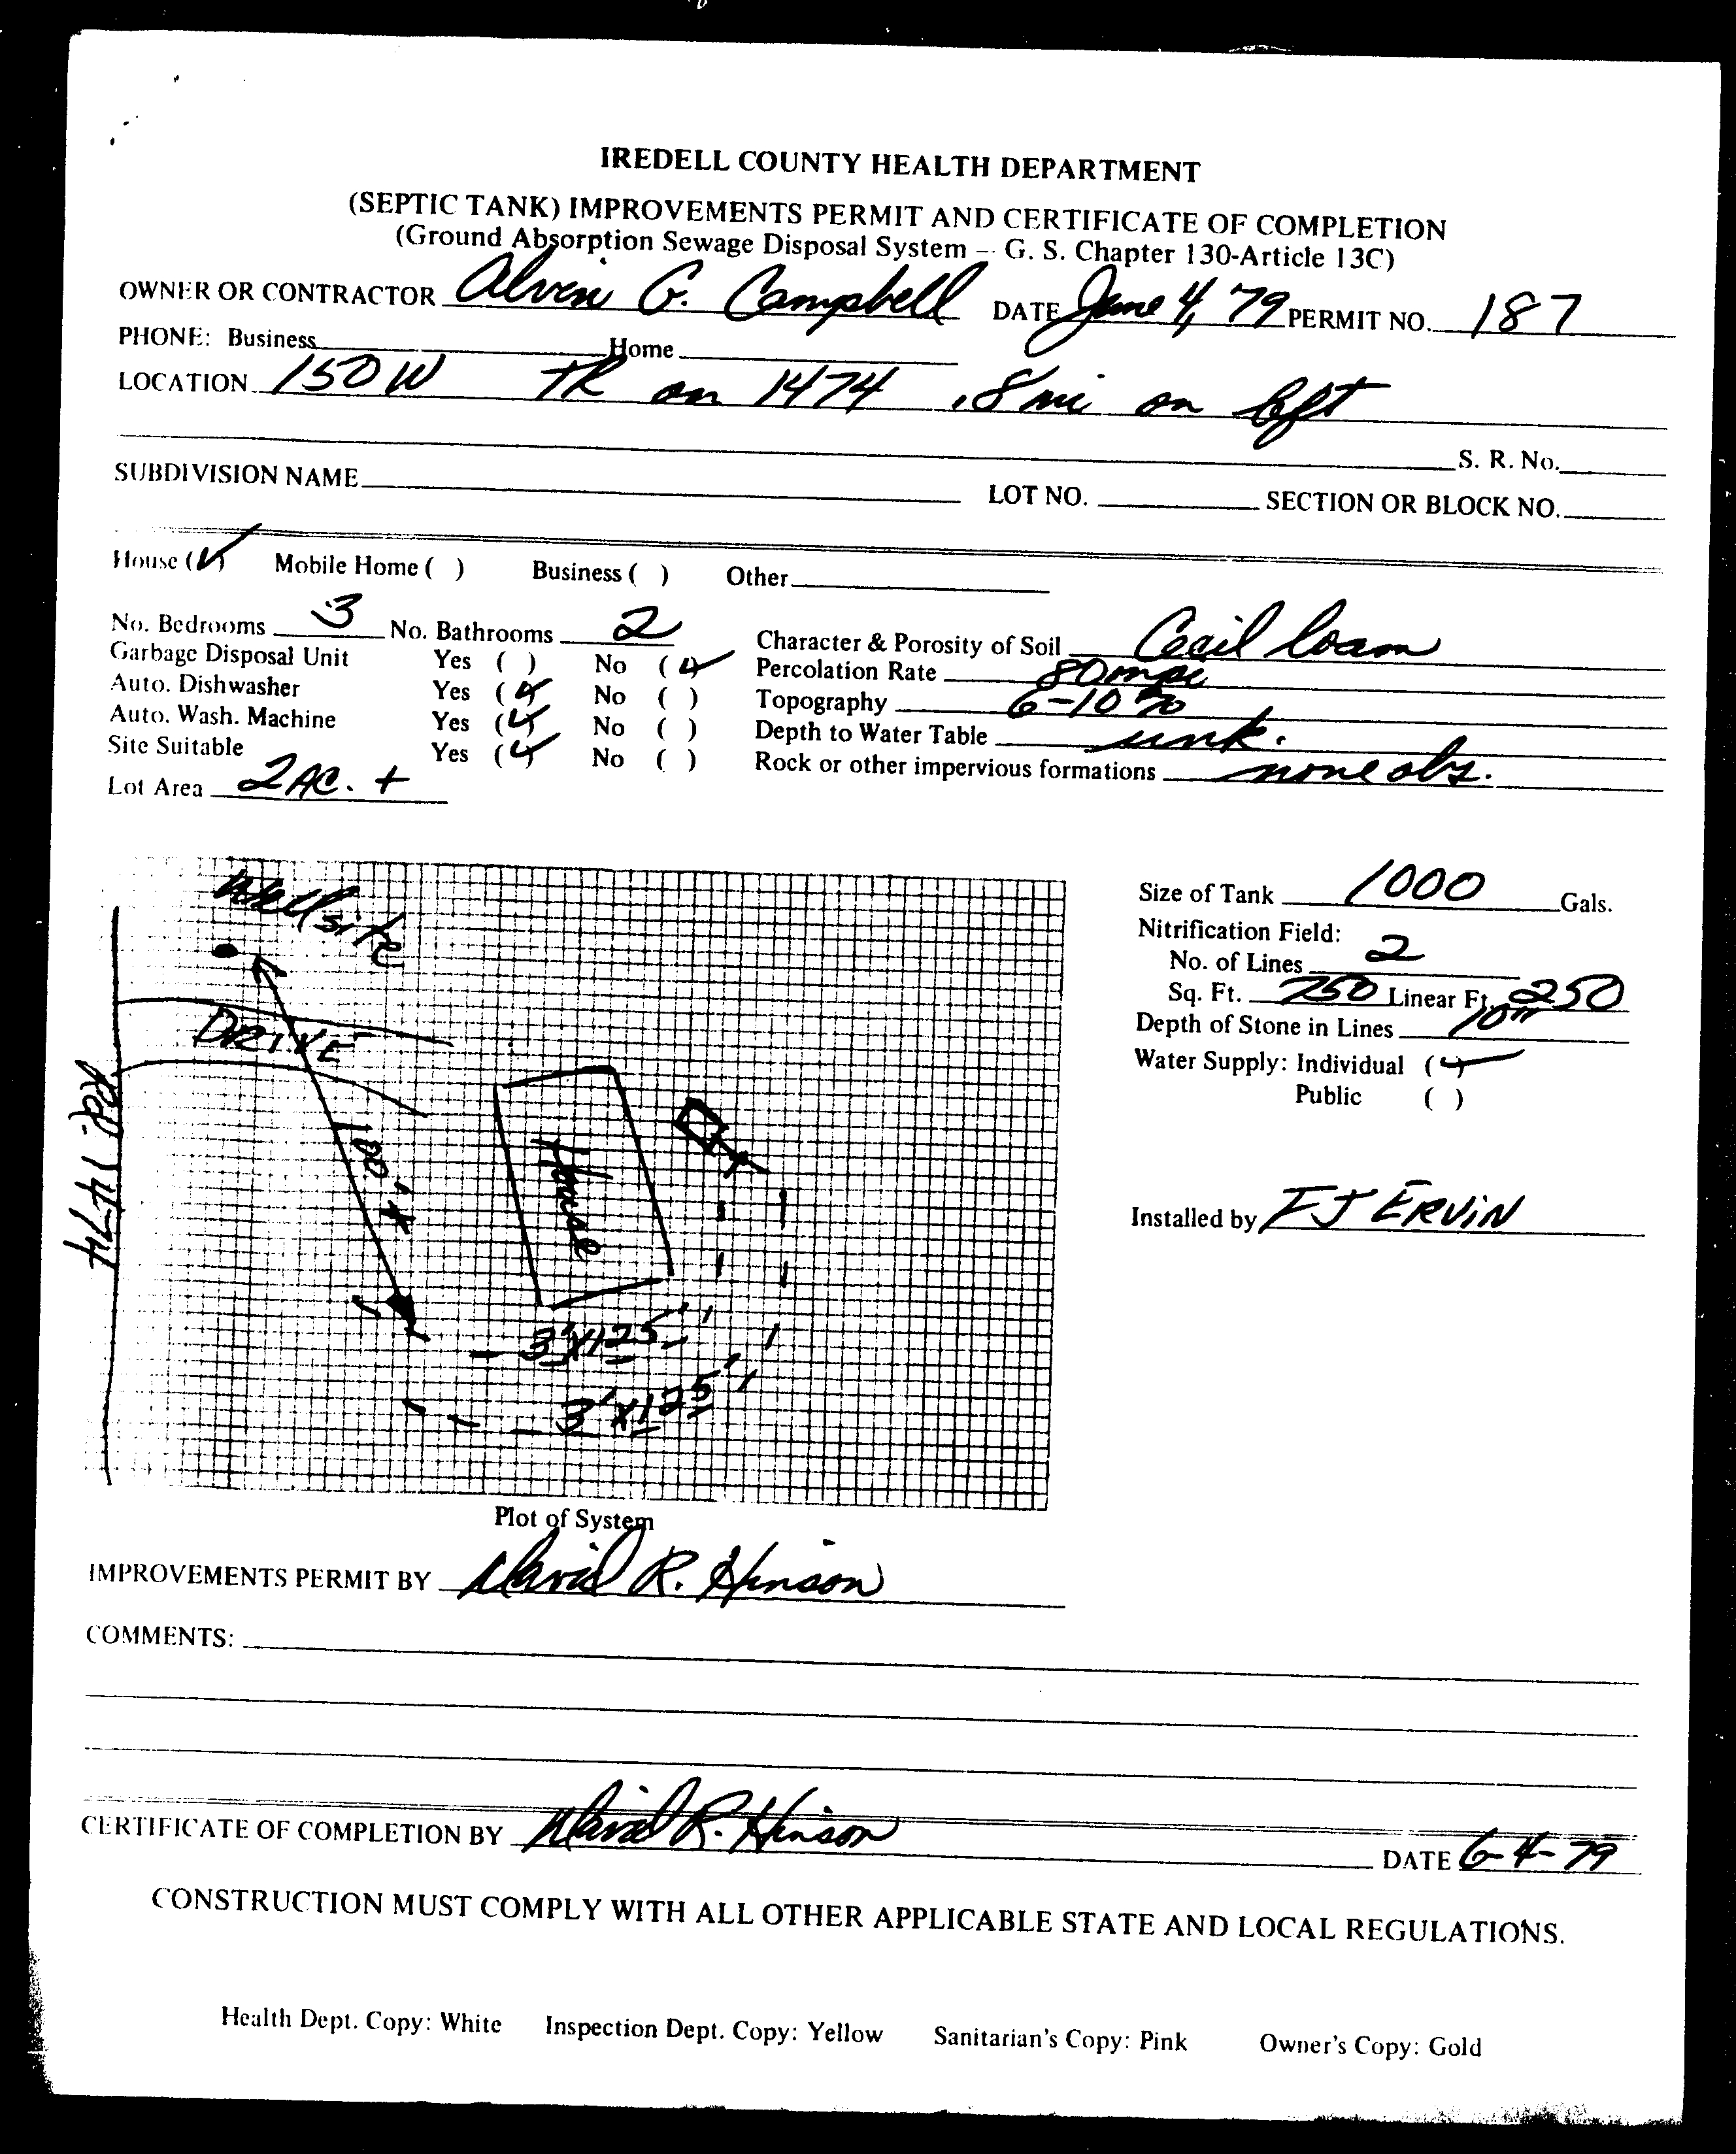 IREDELL COUNTY HEALTH DEPARTMENT
(SEPTIC TANK) IMPROVEMENTS PERMIT AND CERTIFICATE OF COMPLETION
(Ground Absorption Sewage Disposal System -- G. S. Chapter 130-Article 13C)
OWNER OR CONTRACTOR Alvin G. Campbell DATE June 4, '79 PERMIT NO. 187
PHONE: Business Home
LOCATION 150 W TR on 1474 .8 mi on left
S. R. No.
SUBDIVISION NAME LOT NO. SECTION OR BLOCK NO.
House (✓) Mobile Home ( ) Business ( ) Other
No. Bedrooms 3 No. Bathrooms 2 Character & Porosity of Soil Cecil loam
Garbage Disposal Unit Yes ( ) No (✓) Percolation Rate 80 mpi
Auto. Dishwasher Yes (✓) No ( ) Topography 6-10%
Auto. Wash. Machine Yes (✓) No ( ) Depth to Water Table unk.
Site Suitable Yes (✓) No ( ) Rock or other impervious formations none obs.
Lot Area 2 AC. +
Wellsite
DRIVE
Rd. 1474
100'+
House
3'x125'
3'x125'
Size of Tank 1000 Gals.
Nitrification Field:
No. of Lines 2
Sq. Ft. 750 Linear Ft. 250
Depth of Stone in Lines 10"
Water Supply: Individual (✓)
Public ( )
Installed by FJ ERVIN
Plot of System
IMPROVEMENTS PERMIT BY David R. Hinson
COMMENTS:
CERTIFICATE OF COMPLETION BY David R. Hinson
DATE 6-4-79
CONSTRUCTION MUST COMPLY WITH ALL OTHER APPLICABLE STATE AND LOCAL REGULATIONS.
Health Dept. Copy: White Inspection Dept. Copy: Yellow Sanitarian's Copy: Pink Owner's Copy: Gold